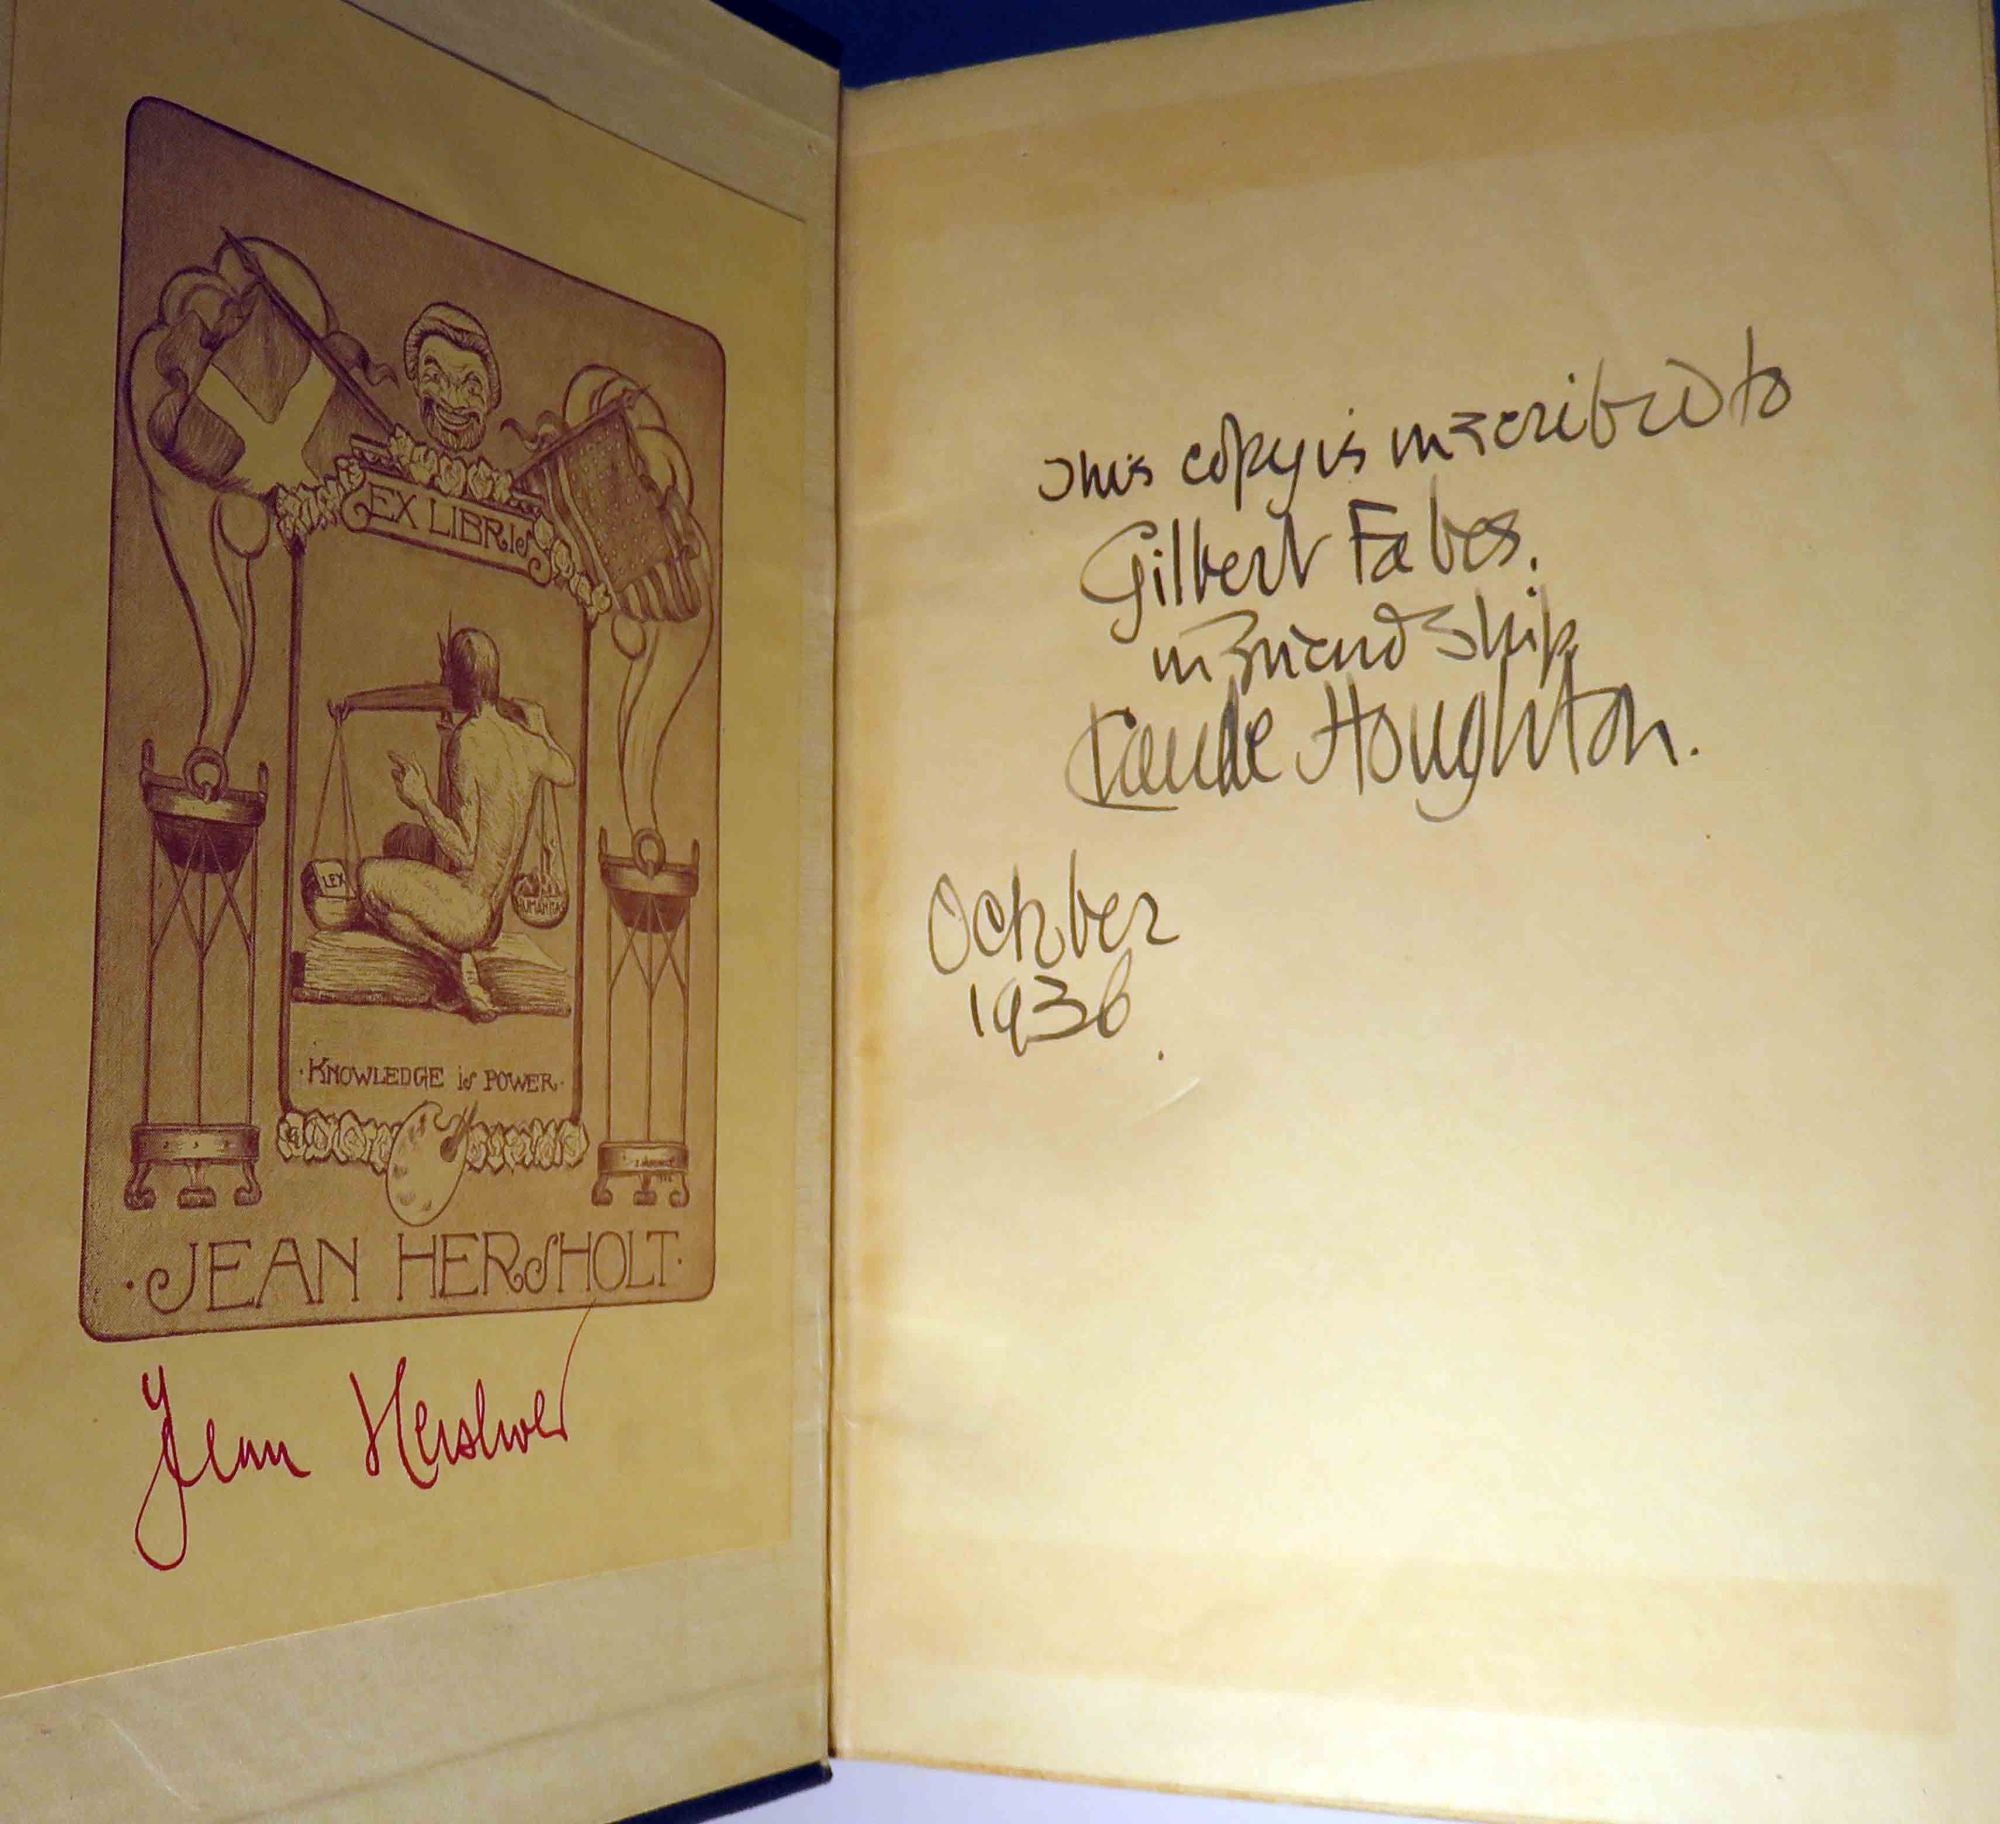 EX LIBRIS
LEX
HUMANITAS
·KNOWLEDGE is POWER·
·JEAN HERSHOLT·
Jean Hersholt
This copy is inscribed to
Gilbert Fabes.
in friendship
Claude Houghton.
October
1936.